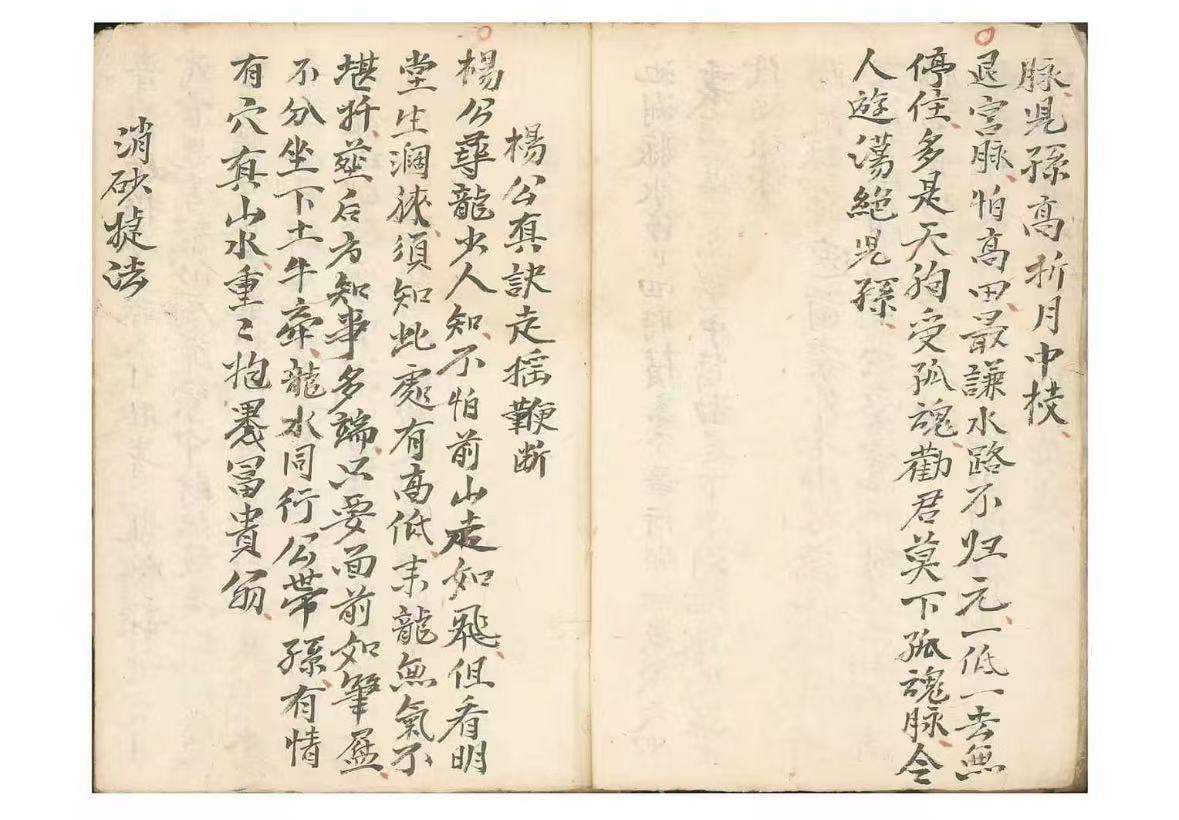 脉児孫高折月中枝
退宫脉怕高田最謙水路不归元一低一去無
停住多是天狗受孤魂勸君莫下孤魂脉令
人遊蕩絶児孫
楊公真訣走摇鞭断
楊公尋龍少人知不怕前山走如飛但看明
堂生澗狹須知此處有高低来龍無氣不
堪扦塟后方知事多端只要面前如筆
不分坐下土牛牽龍水同行公帶孫有情
有穴真山水重〻抱富貴翁
消砂捷法